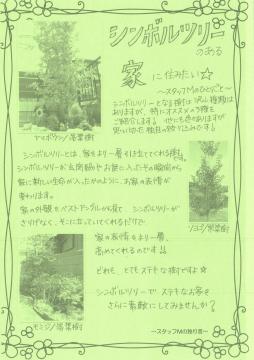 シンボルツリー
のある
家 に住みたい☆
～スタッフMのひとりごと～
シンボルツリーとなる樹は沢山種類は
ありますが、特にオススメの3種を
ご紹介します！ 他にも色々ありますが
思い切った独自の絞り込みです！
ヤマボウシ／落葉樹
シンボルツリーとは、家をより一層引き立ててくれる樹。
シンボルツリーが玄関脇やお庭に入ったその瞬間から
家に新しい生命が入ったかのように、お家の表情が
変わります。
家の外観をベストアングルから見て、シンボルツリーが
さりげなく、そこに立っていてくれるだけで
家の表情をより一層、
高めてくれるのです!!
ソヨゴ／常葉樹
どれも、とてもステキな樹ですよ☆
シンボルツリーでステキなお家を
さらに素敵にしてみませんか？
モミジ／落葉樹
～スタッフMの独り言～